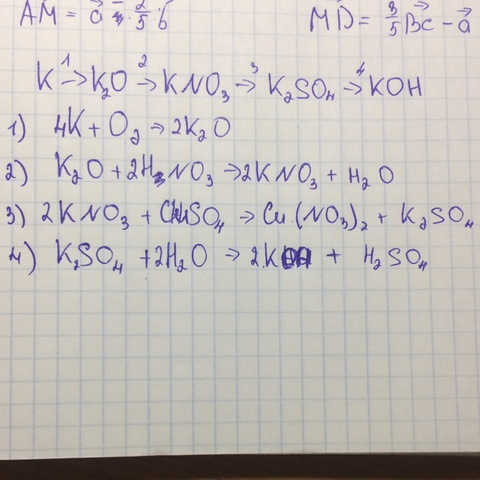 AM = a⃗ - 2/5 b⃗ MD = 3/5 BC⃗ - a⃗
K →¹ K₂O →² KNO₃ →³ K₂SO₄ →⁴ KOH
1) 4K + O₂ → 2K₂O
2) K₂O + 2HNO₃ → 2KNO₃ + H₂O
3) 2KNO₃ + CuSO₄ → Cu(NO₃)₂ + K₂SO₄
4) K₂SO₄ + 2H₂O → 2KOH + H₂SO₄